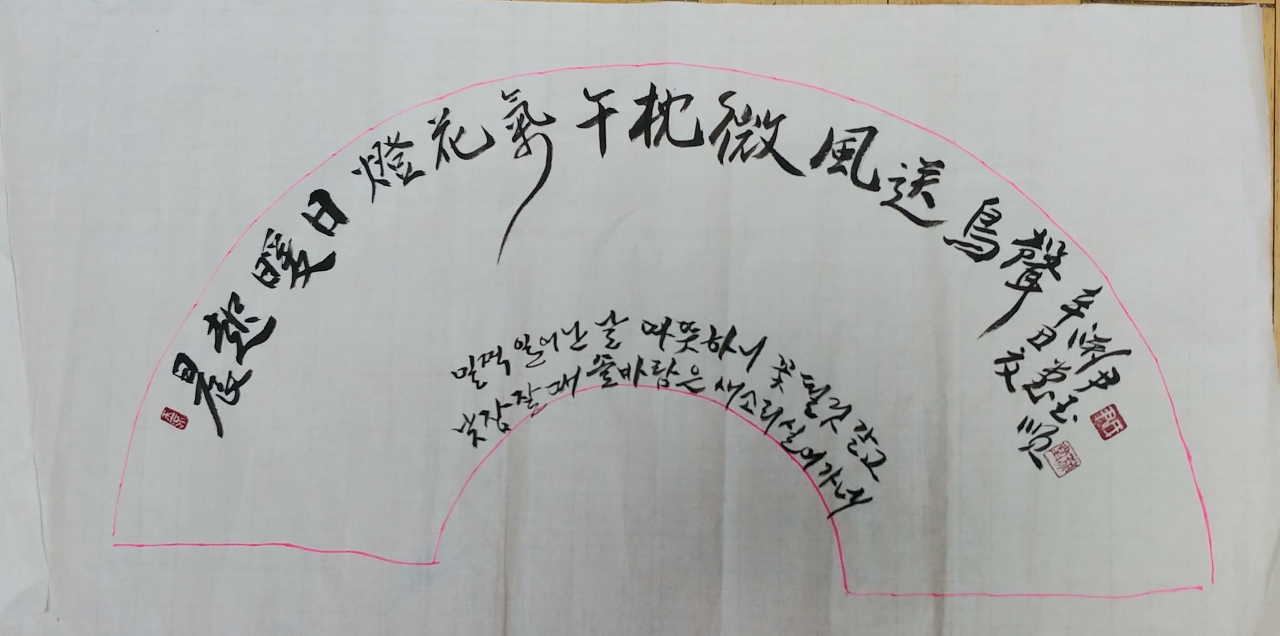 晨起暖日燈花氣午枕微風送鳥聲
辛丑夏
尹玉順
일찍 일어난 날 따뜻하니 꽃 같고
낮잠 잘 때 바람은 새소리 실어가네